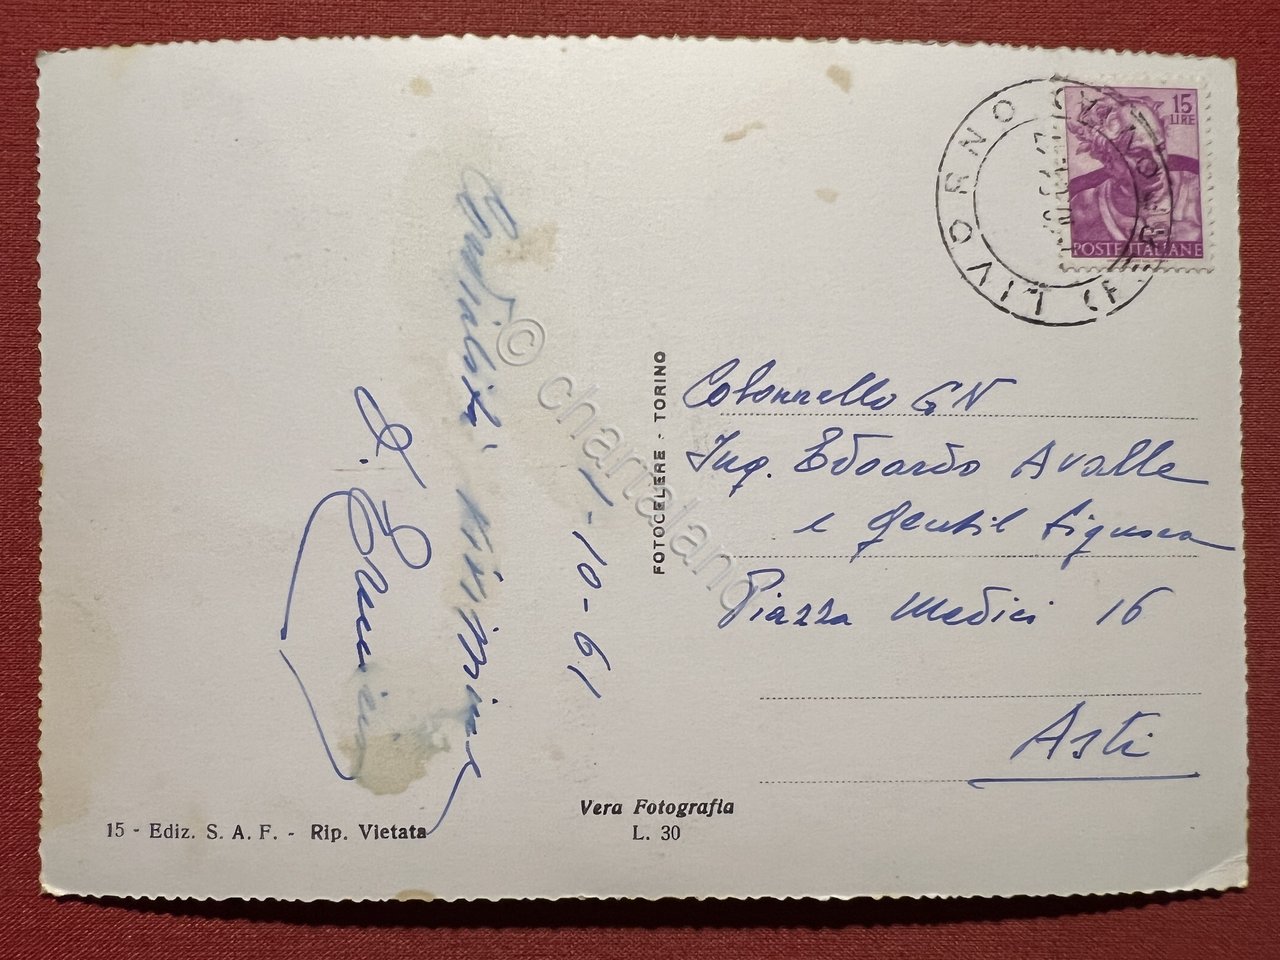 Cordialità vivissime
1-10-61
FOTOCELERE - TORINO
Colonnello GN
Ing. Edoardo Avalle
e gentil Signora
Piazza Medici 16
Asti
15 LIRE
POSTE ITALIANE
LIVORNO
FERR
Vera Fotografia
L. 30
15 - Ediz. S. A. F. - Rip. Vietata
© chartaland